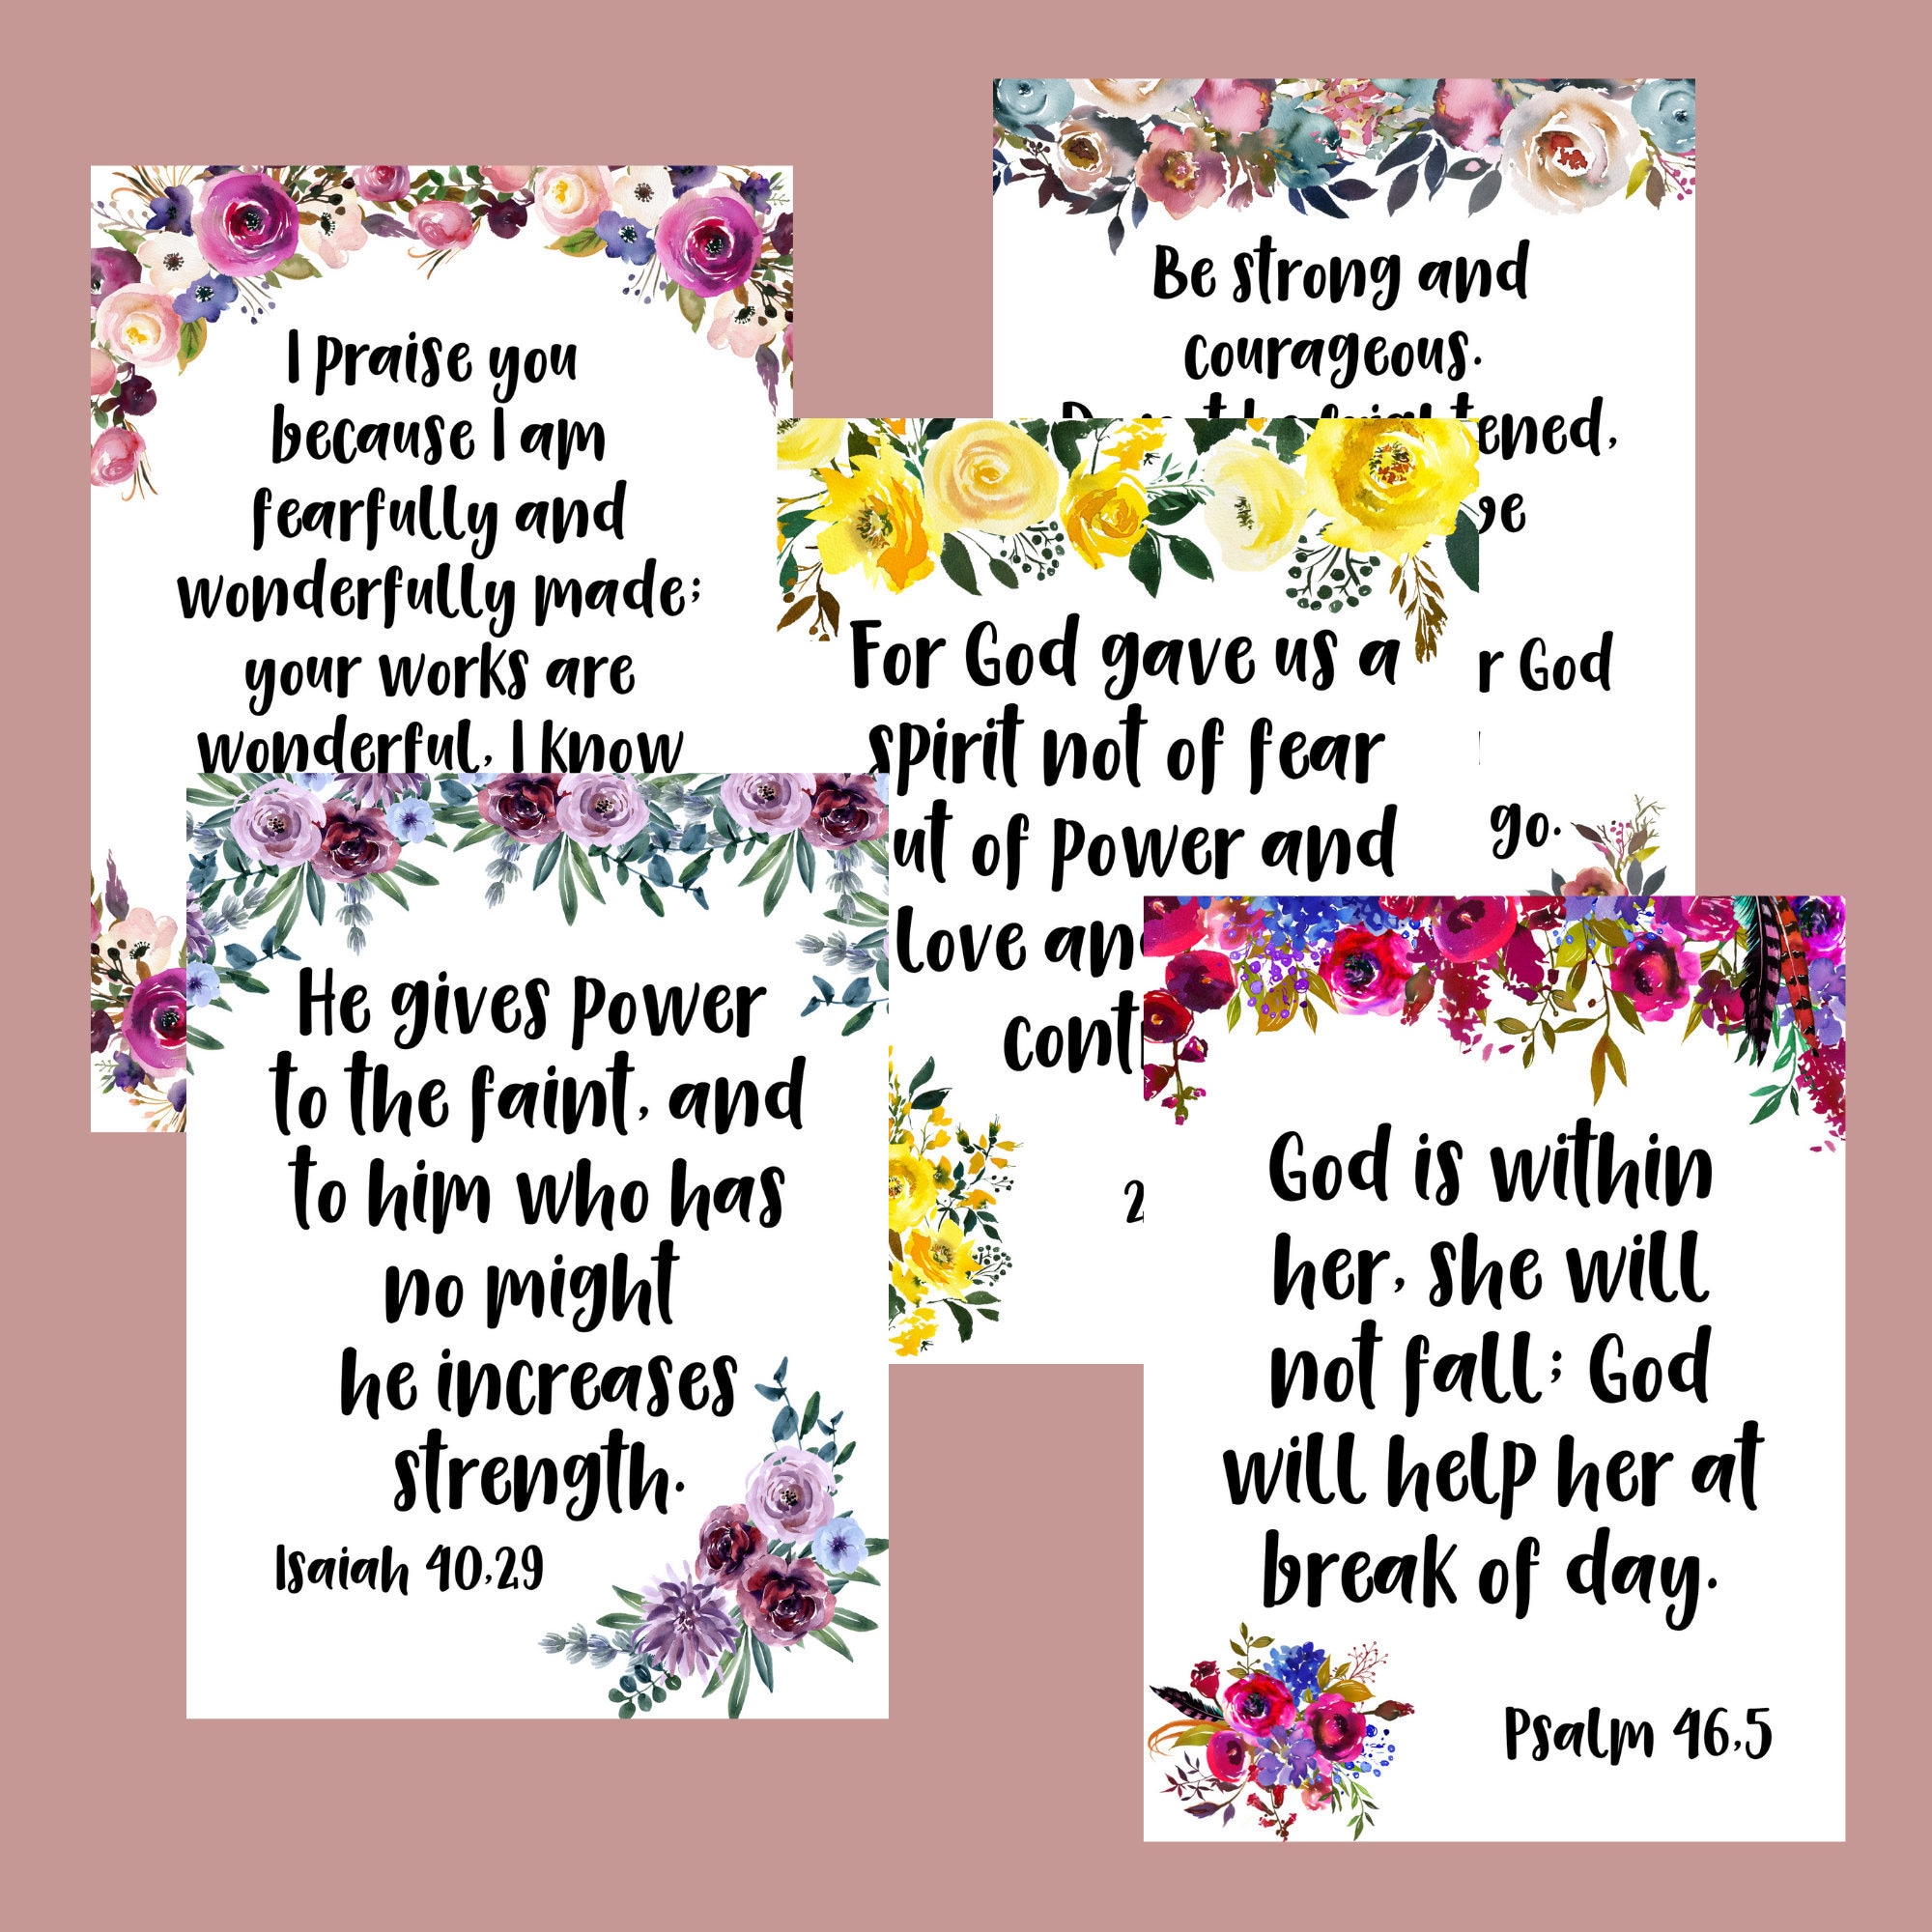 I praise you
because I am
fearfully and
wonderfully made;
your works are
wonderful, I know
Be strong and
courageous.
For God gave us a
spirit not of fear
of power and
love
God
go.
He gives power
to the faint, and
to him who has
no might
he increases
strength.
Isaiah 40,29
God is within
her, she will
not fall; God
will help her at
break of day.
Psalm 46,5